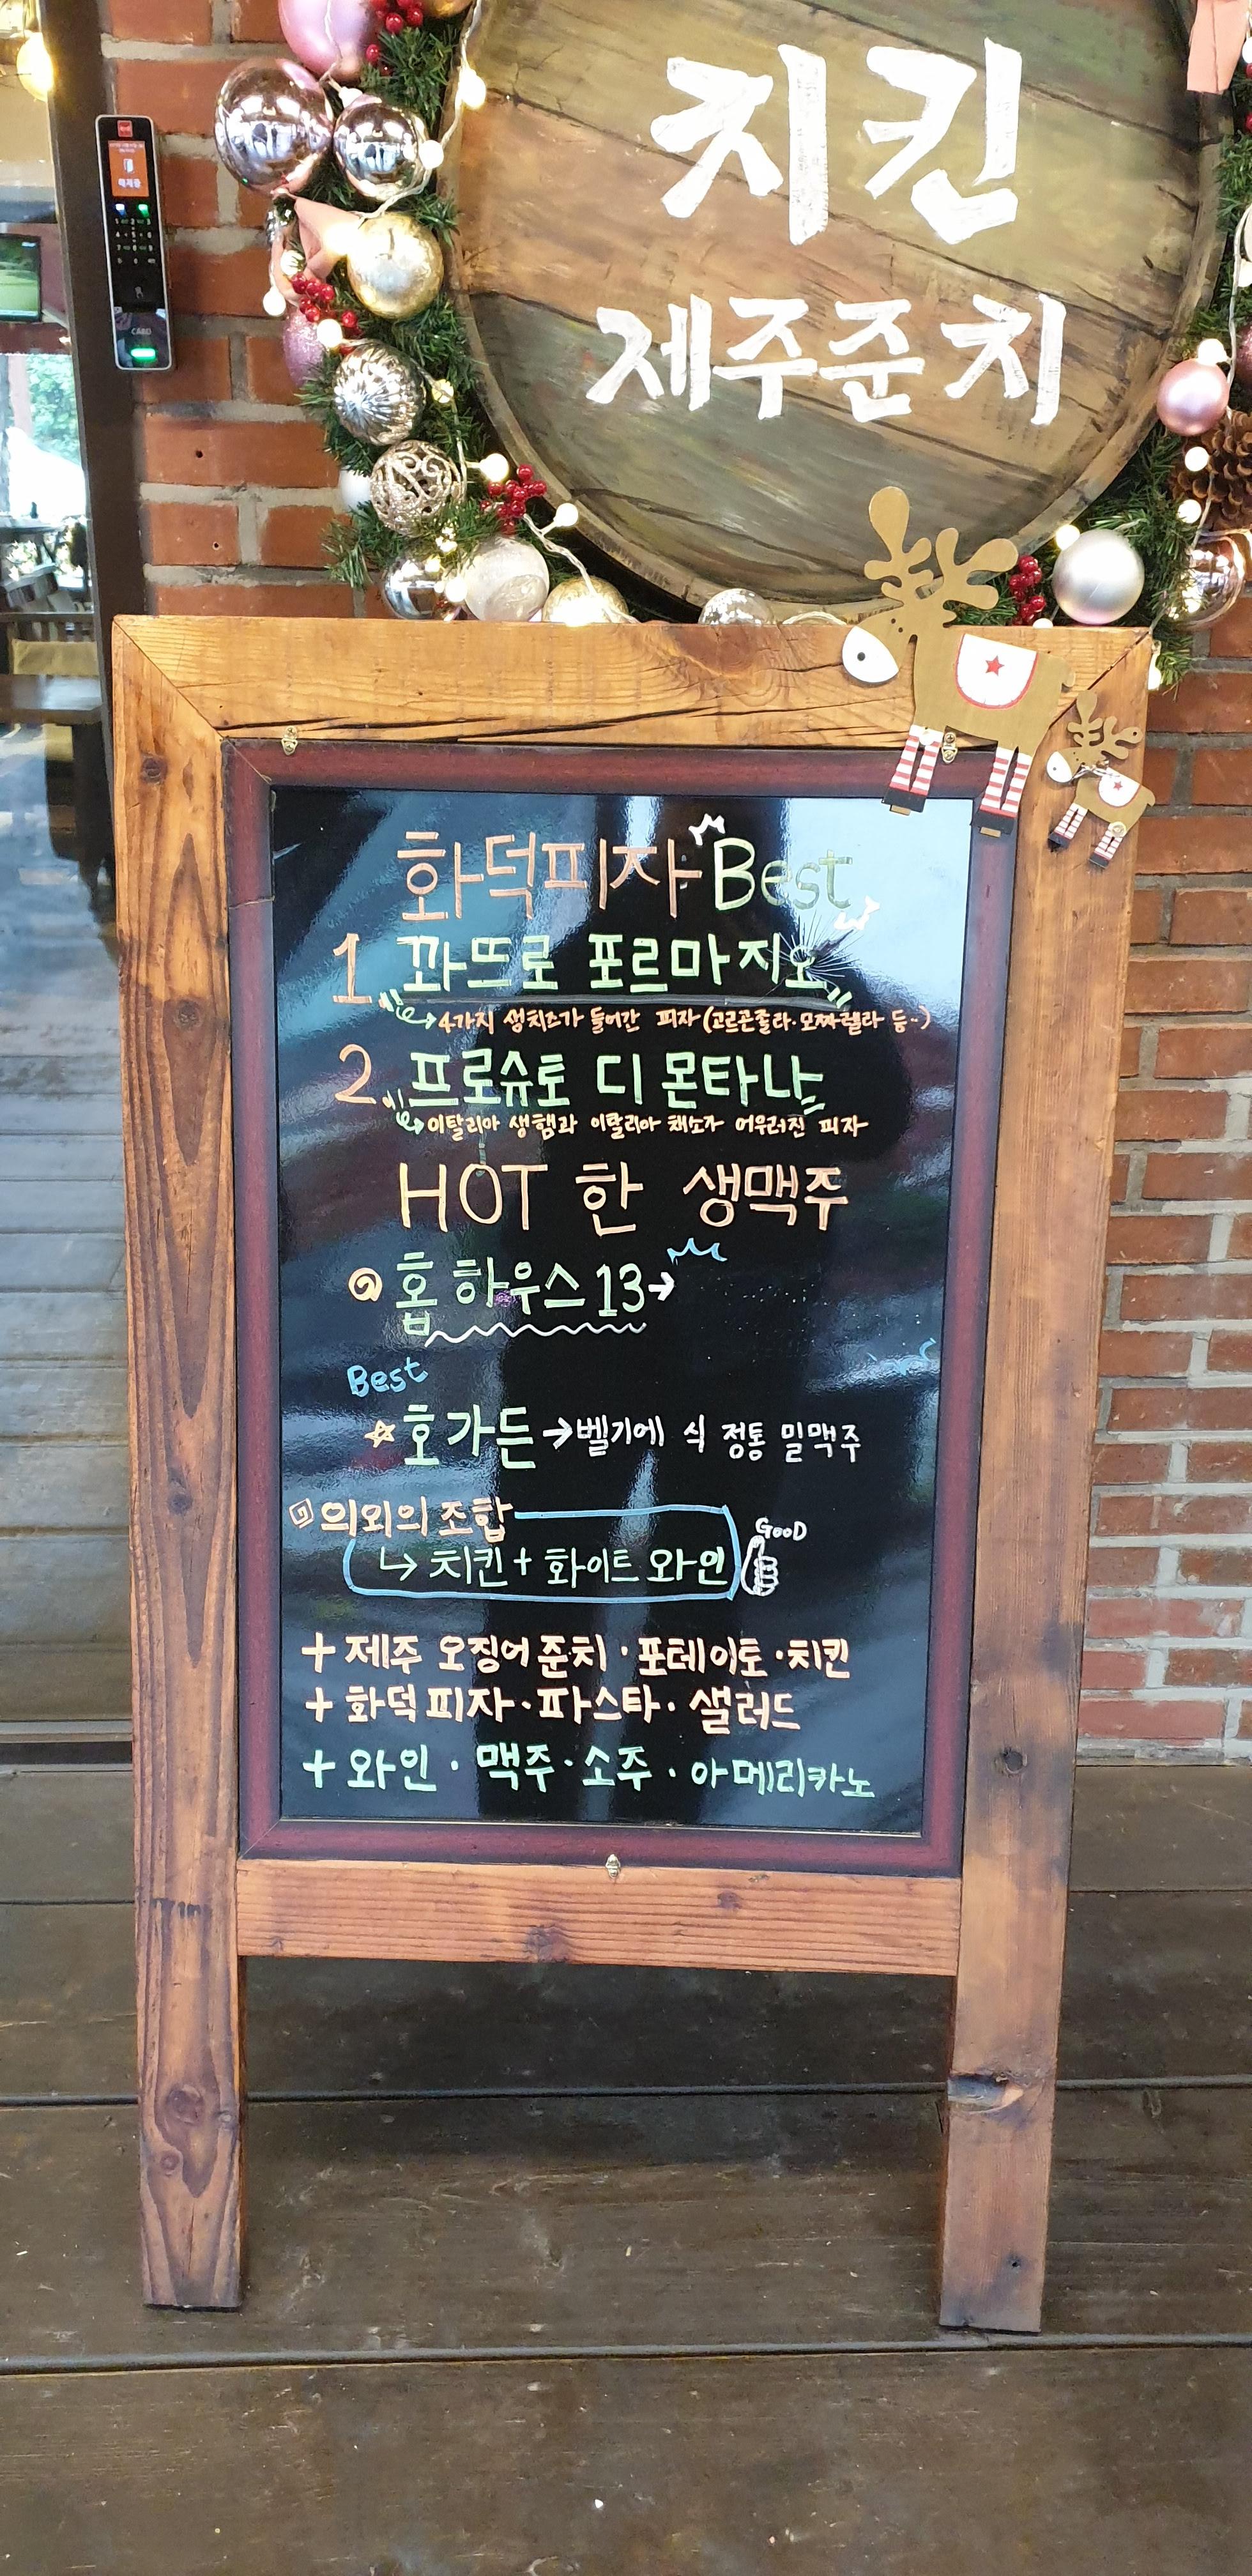 치킨
제주준치
화덕피자 Best
1 꽈뜨로 포르마지오
4가지 생치즈가 들어간 피자 (고르곤졸라·모짜렐라 등~)
2 프로슈토 디 몬타냐
이탈리아 생햄과 이탈리아 채소가 어우러진 피자
HOT 한 생맥주
홉 하우스 13→
Best
☆ 호가든 → 벨기에 식 정통 밀맥주
의외의 조합
↳ 치킨 + 화이트 와인
GOOD
+ 제주 오징어 준치·포테이토·치킨
+ 화덕 피자·파스타·샐러드
+ 와인·맥주·소주·아메리카노